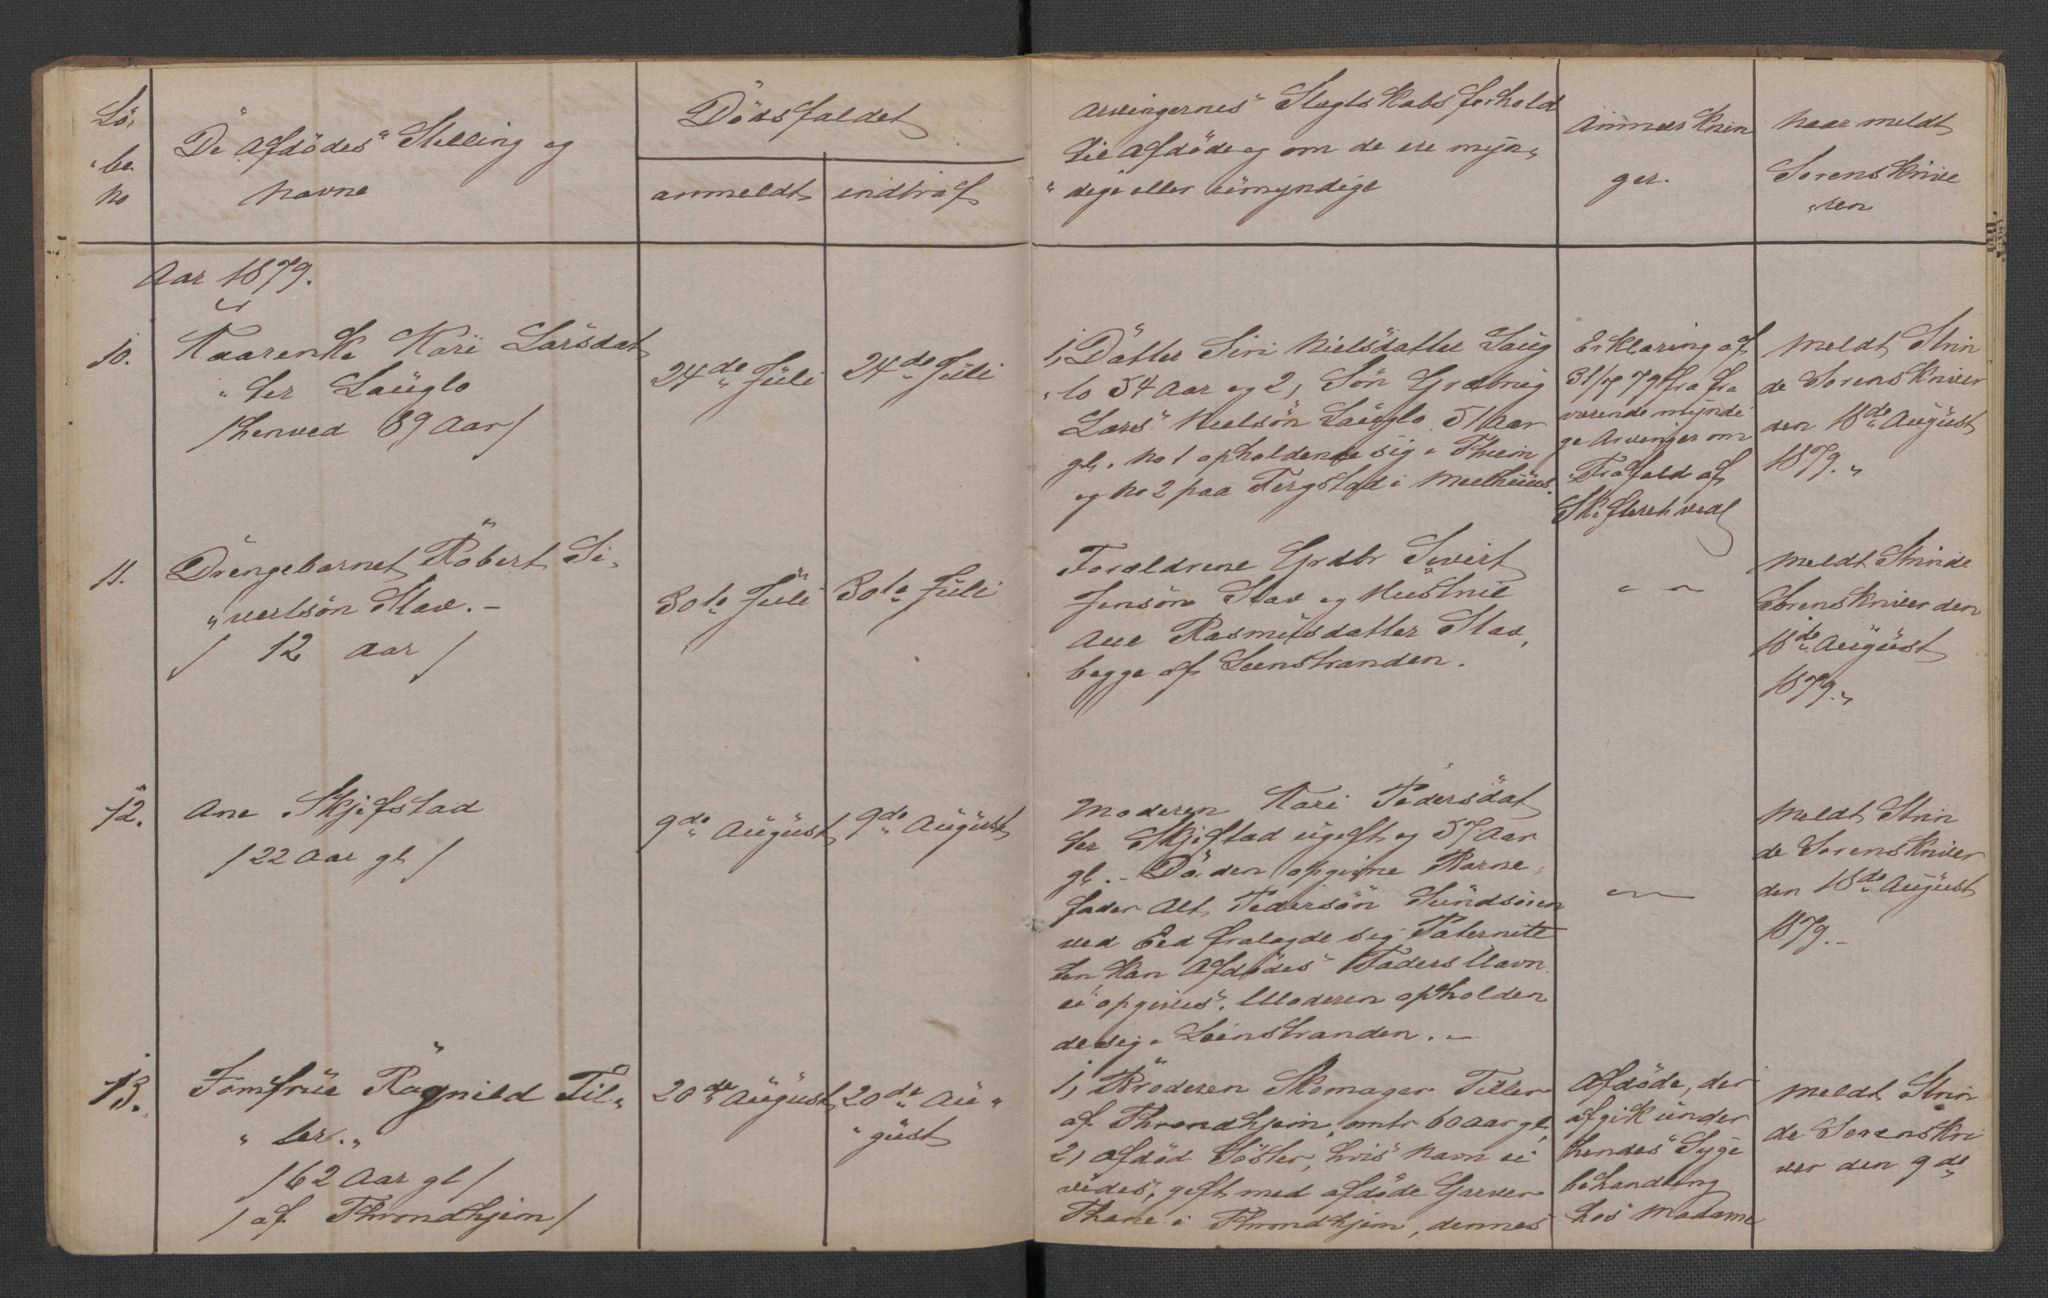 Lö,
"be
No
De Afdödes Stilling og
Navne
Dödsfaldet
anmeldt
indtraf
Arvingernes Slægtskabsforhold
til Afdøde og om de ere myn"
"dige eller umyndige
Anmærknin
ger.
Naar meldt
Sorenskrive
"ren
Aar 1879.
10.
Kaarenke Kari Larsdat
"ter Lauglo
/henved 89 Aar/
24de Juli
24de Juli
1, Datter Siri Nielsdatter Laug
"lo 54 Aar og 2, Søn Grdbrug
Lars Nielsøn Lauglo 51 Aar
gl. No 1 opholdende sig i Throin
og No 2 paa Tergstad i Meelhuus.
Erklæring af
31/7 79 fra fra
værende myndi
ge Arvinger om
Frafald af
Skifteret ved
Meldt Strin
de Sorenskriver
den 18de August
1879."
11.
Drengebarnet Robert Si"
"vertsön Stav. -
/ 12 Aar /
30te Juli
30te Juli
Forældrene Grdbr Sivert
Jensön Stav og Hustrue
Ane Rasmusdatter Stav,
begge af Leenstranden.
" "
Meldt Strinde
Sorenskriver den
18de August
1879."
12.
Ane Skjefstad
/ 22 Aar gl /
9de August
9de August
Moderen Kari Pedersdat
ter Skjefstad ugift og 57 Aar
gl. - Da den opgivne Barne"
fader Alt. Pedersön Sundsöien
ved Eed fralagde sig Paternite
ten kan Afdödes Faders Navn
ei opgives. Moderen opholden
de sig i Leinstranden. -
"
Meldt Strin
de Sorenskriver
den 18de August
1879.-
13.
Jomfrue Ragnild Til"
"ler."
/62 Aar gl/
/ af Throndhjem /
20de August
20de Au"
"gust
1, Broderen Skomager Tiller
af Throndhjem, omtr 60 Aar gl,
2, afdød Søster, hvis Navn ei
vides, gift med afdøde Garver
Thane i Throndhjem, dennes
Afdøde, der
afgik under
hendes Syge
behandling
hos Madame
Meldt Strin
de Sorenskri
ver den 9de